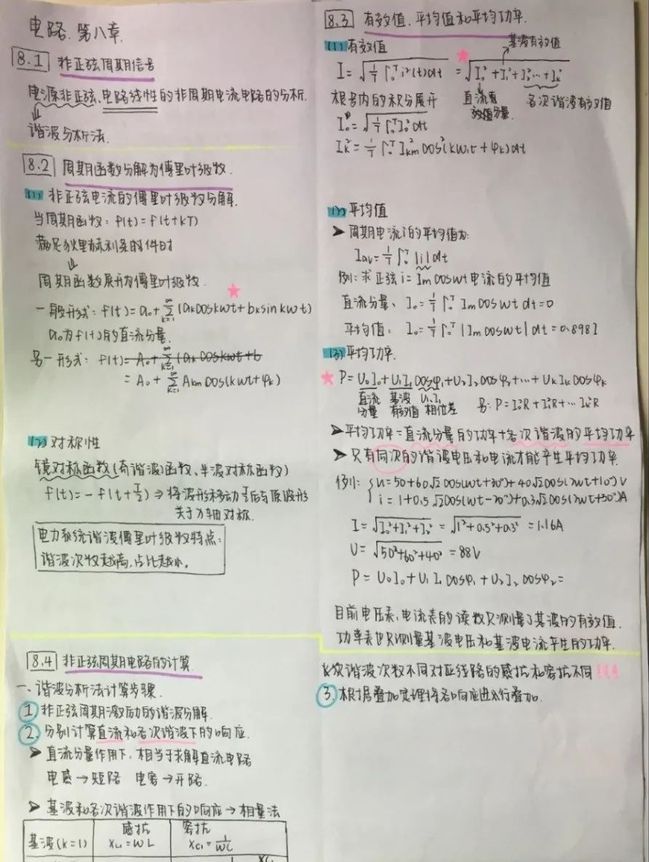 电路.第八章.
8.1 非正弦周期信号
电源非正弦、电路线性的非周期电流电路的分析.
↓
谐波分析法.
8.2 周期函数分解为傅里叶级数.
(1) 非正弦电流的傅里叶级数分解.
当周期函数: f(t)=f(t+kT)
满足狄里赫利条件时
↓
周期函数展开为傅里叶级数.
一般形式: f(t)=a₀+∑(aₖcoskωt+bₖsinkωt)
a₀为f(t)的直流分量.
另一形式: f(t)=A₀+∑(aₖcoskωt+b
=A₀+∑Aₖₘcos(kωt+φₖ)
(2) 对称性
镜对称函数(奇谐波)函数、半波对称函数)
f(t)=-f(t+T/2)⇒将波形移动T/2后与原波形
关于x轴对称.
电力系统谐波傅里叶级数特点:
谐波次数越高,占比越小.
8.4 非正弦周期电路的计算
一、谐波分析法计算步骤.
① 非正弦周期激励的谐波分解.
② 分别计算直流和各次谐波下的响应.
➤ 直流分量作用下,相当于求解直流电路
电感→短路 电容→开路.
➤ 基波和各次谐波作用下的响应→相量法
感抗 容抗
基波(k=1) X_L₁=ωL X_C₁=1/ωC
8.3 有效值、平均值和平均功率.
(1) 有效值
基波有效值
I=√(1/T ∫₀ᵀ i²(t)dt)=√(I₀²+I₁²+I₂²…+Iₖ²)
根号内的积分展开 直流有效值分量. 各次谐波有效值
I₀²=√(1/T ∫₀ᵀ I₀²dt
Iₖ²=1/T ∫₀ᵀ I²ₖₘcos²(kωt+φₖ)dt
(2) 平均值
➤ 周期电流i的平均值为:
Iav=1/T ∫₀ᵀ |i|dt
例: 求正弦i=Imcosωt电流的平均值
直流分量: I₀=1/T ∫₀ᵀ Imcosωt dt=0
平均值: I₀=1/T ∫₀ᵀ |Imcosωt|dt=0.898I
(3) 平均功率.
P=U₀I₀+U₁I₁cosφ₁+U₂I₂cosφ₂+…+UₖIₖcosφₖ
直流分量 基波有效值 U₁、I₁相位差 另: P=I₀²R+I₁²R+…Iₖ²R
➤ 平均功率=直流分量的功率+各次谐波的平均功率
➤ 只有同次的谐波电压和电流才能产生平均功率.
I=√(I₀²+I₁²+I₂²)=√(1²+0.5²+0.3²)=1.16A
U=√(50²+60²+40²)=88V
P=U₀I₀+U₁I₁cosφ₁+U₂I₂cosφ₂=
目前电压表、电流表的读数只测量了基波的有效值.
功率表也只测量基波电压和基波电流产生的功率.
各次谐波次数不同对应线路的感抗和容抗不同!!!
③ 根据叠加定理将各响应进行叠加.